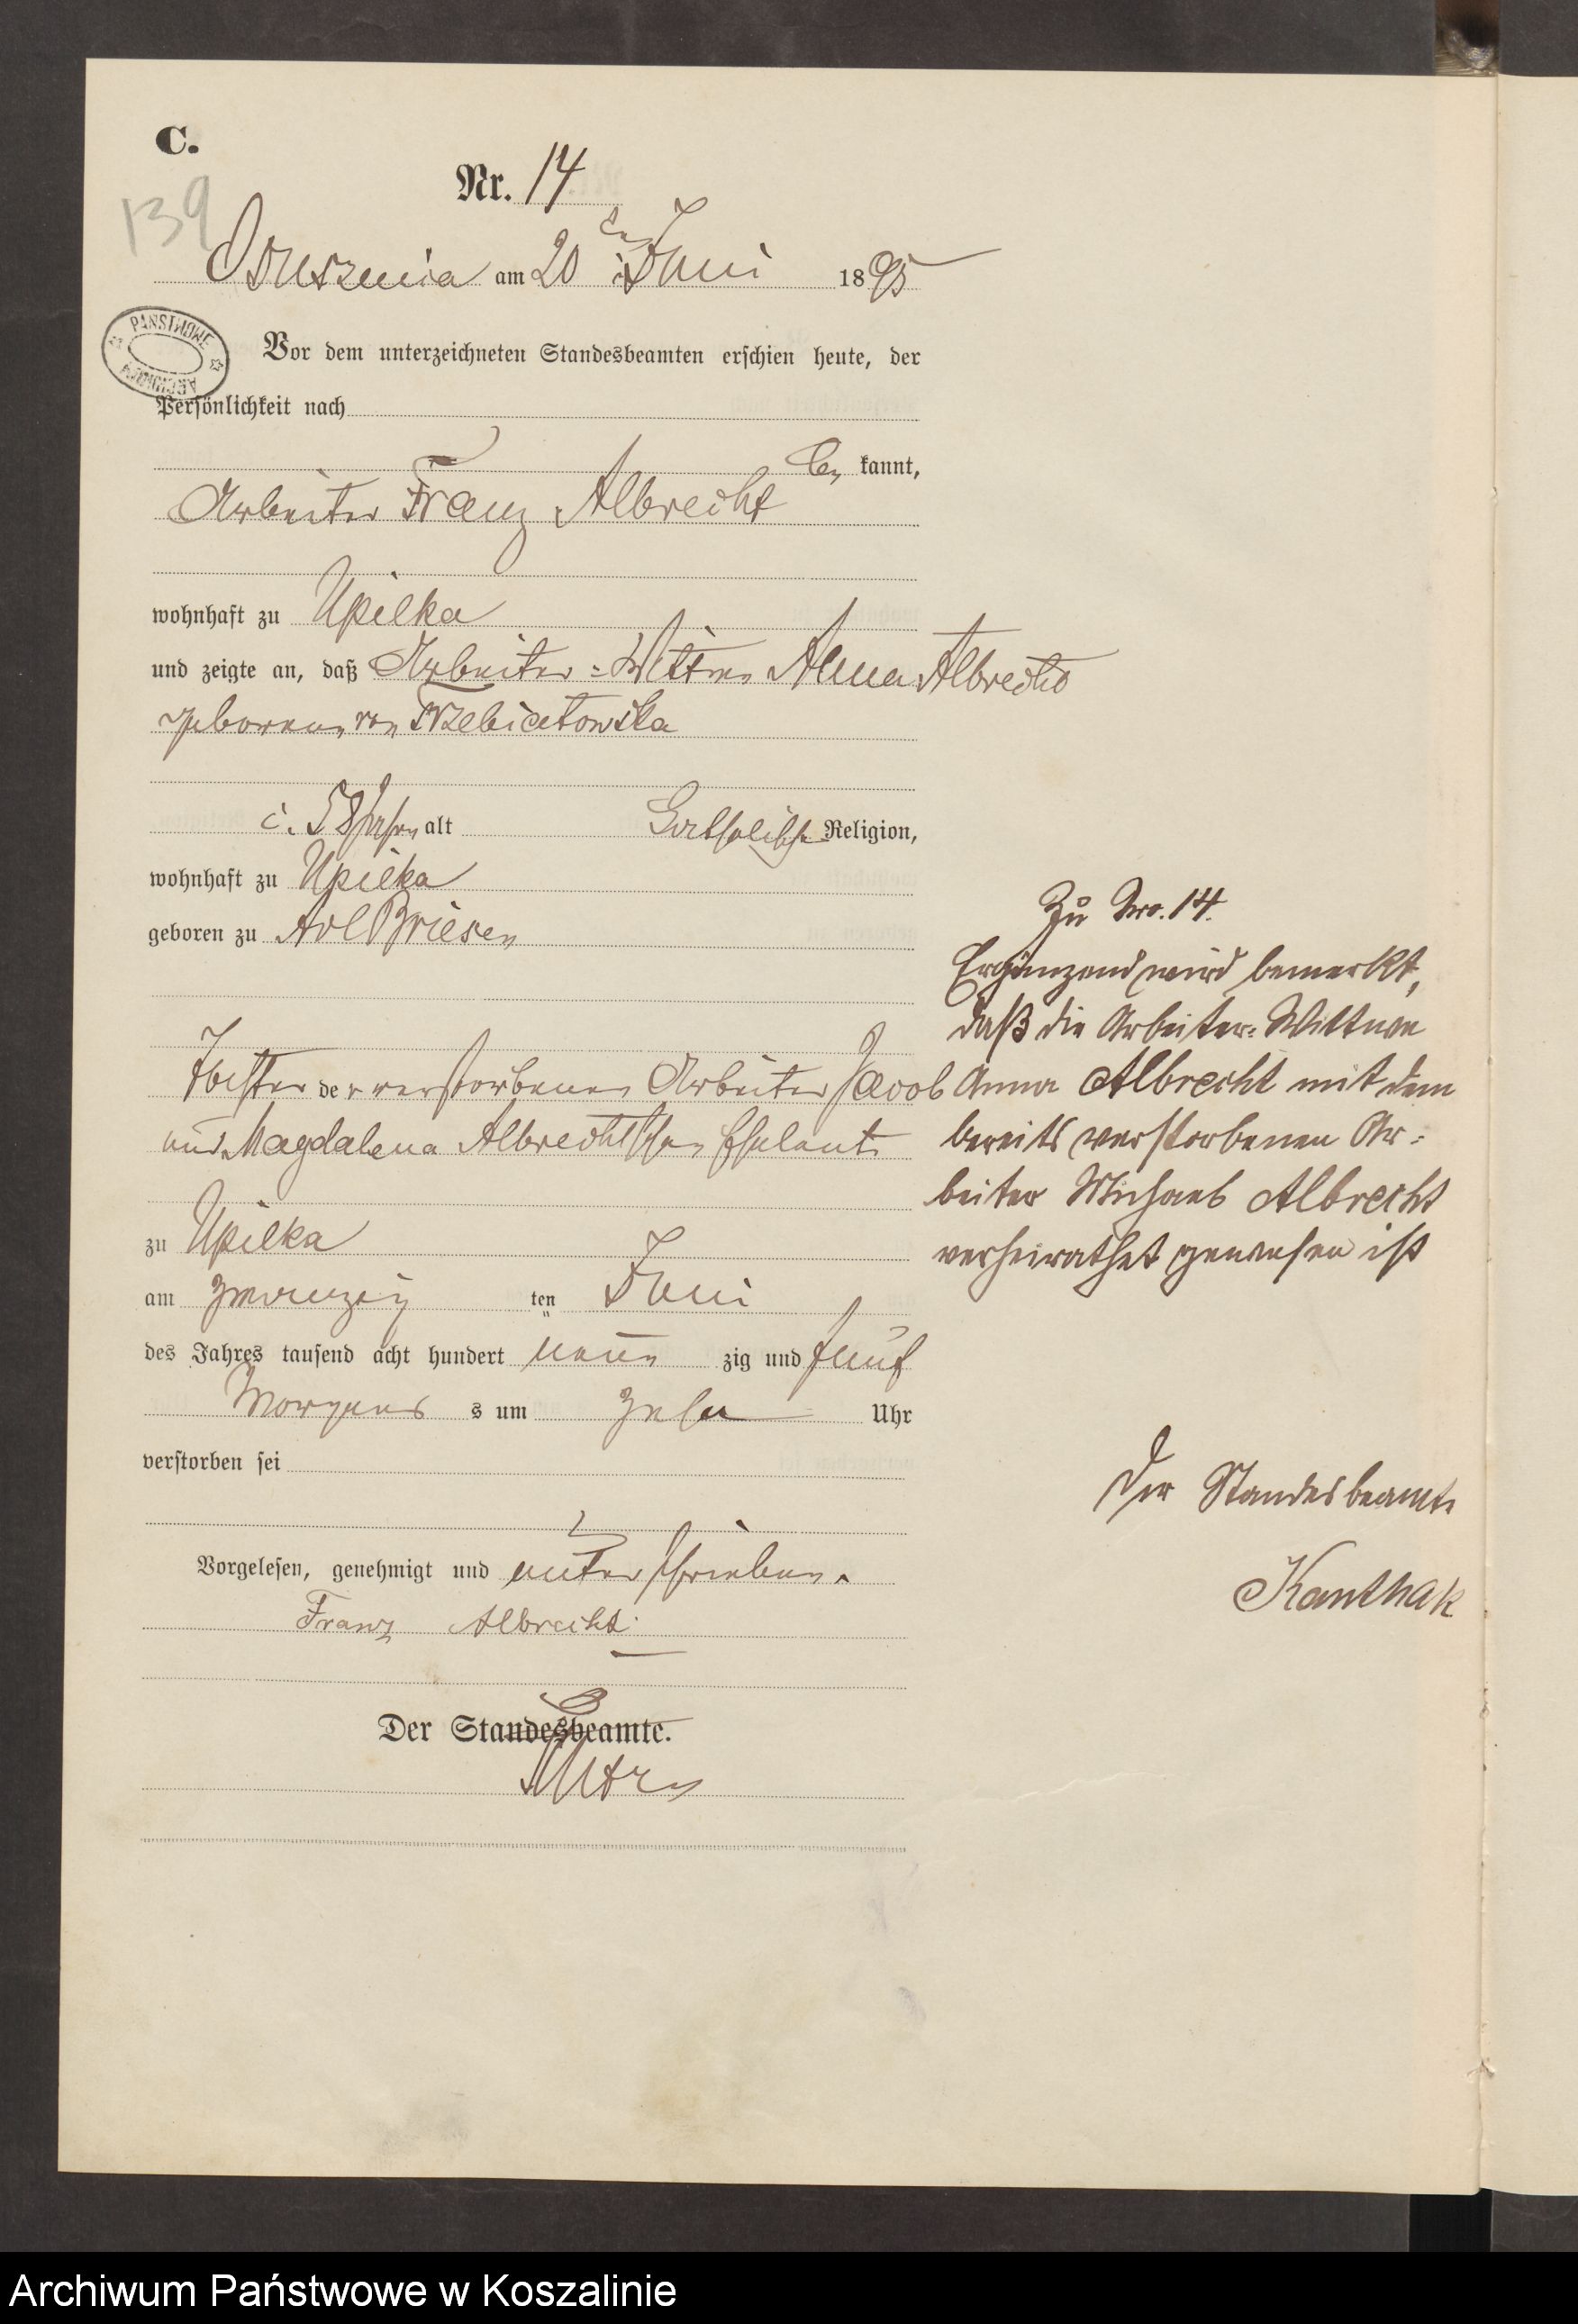 C.
139
Nr. 14
Osusznica am 20 ten Juni 1895
PAŃSTWOWE ARCHIWUM
Vor dem unterzeichneten Standesbeamten erschien heute, der
Persönlichkeit nach
be kannt,
Arbeiter Franz Albrecht
wohnhaft zu Upilka
und zeigte an, daß Arbeiter=Wittwe Anna Albrecht
geborene von Trzebiatowska
c. 58 Jahre alt Katholische Religion,
wohnhaft zu Upilka
geboren zu Adl Briesen
Tochter der verstorbenen Arbeiter Jacob
und Magdalena Albrechtschen Eheleute
zu Upilka
am zwanzig ten Juni
des Jahres tausend acht hundert neun zig und fünf
Morgens s um zehn Uhr
verstorben sei
Vorgelesen, genehmigt und unterschrieben.
Franz Albrecht
Der Standesbeamte.
Zu Nro. 14.
Ergänzend wird bemerkt,
daß die Arbeiter=Wittwe
Anna Albrecht mit dem
bereits verstorbenen Ar=
beiter Michael Albrecht
verheirathet gewesen ist
Der Standesbeamte
Kanthak
Archiwum Państwowe w Koszalinie